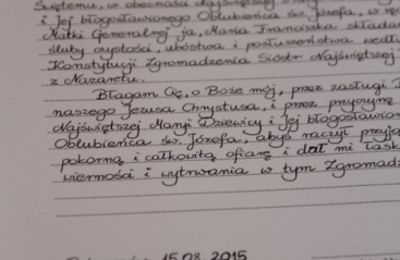 Świętemu, w obecności Najświętszej
i Jej błogosławionego Oblubieńca św. Józefa, w rę
Matki Generalnej ja, Maria Franciszka składam
śluby czystości, ubóstwa i posłuszeństwa wedłu
Konstytucji Zgromadzenia Sióstr Najświętszej
z Nazaretu.
Błagam Cię, o Boże mój, przez zasługi
naszego Jezusa Chrystusa, i przez przyczynę
Najświętszej Maryi Dziewicy i Jej błogosławion
Oblubieńca św. Józefa, abyś raczył przyją
pokorną i całkowitą ofiarę i dał mi łask
wierności i wytrwania w tym Zgromadz
15.08.2015